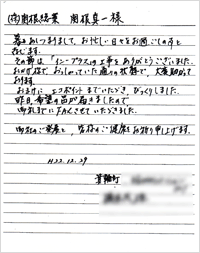 (有)関根総業 関根真一様
暮もおしつまりまして、お忙しい日々をお過ごしの事と
存じます。
その節は「インプラス」の工事をありがとうございました。
おかげ様で、おっしゃっていた通りの状態で、大変助かって
おります。
おまけに、エコポイントまでいただき、びっくりしました。
昨日、希望の品が届きましたので
御礼までにFAXさせていただきました。
御社のご発展と、皆様のご健康をお祈り申し上げます。
H22.12.29